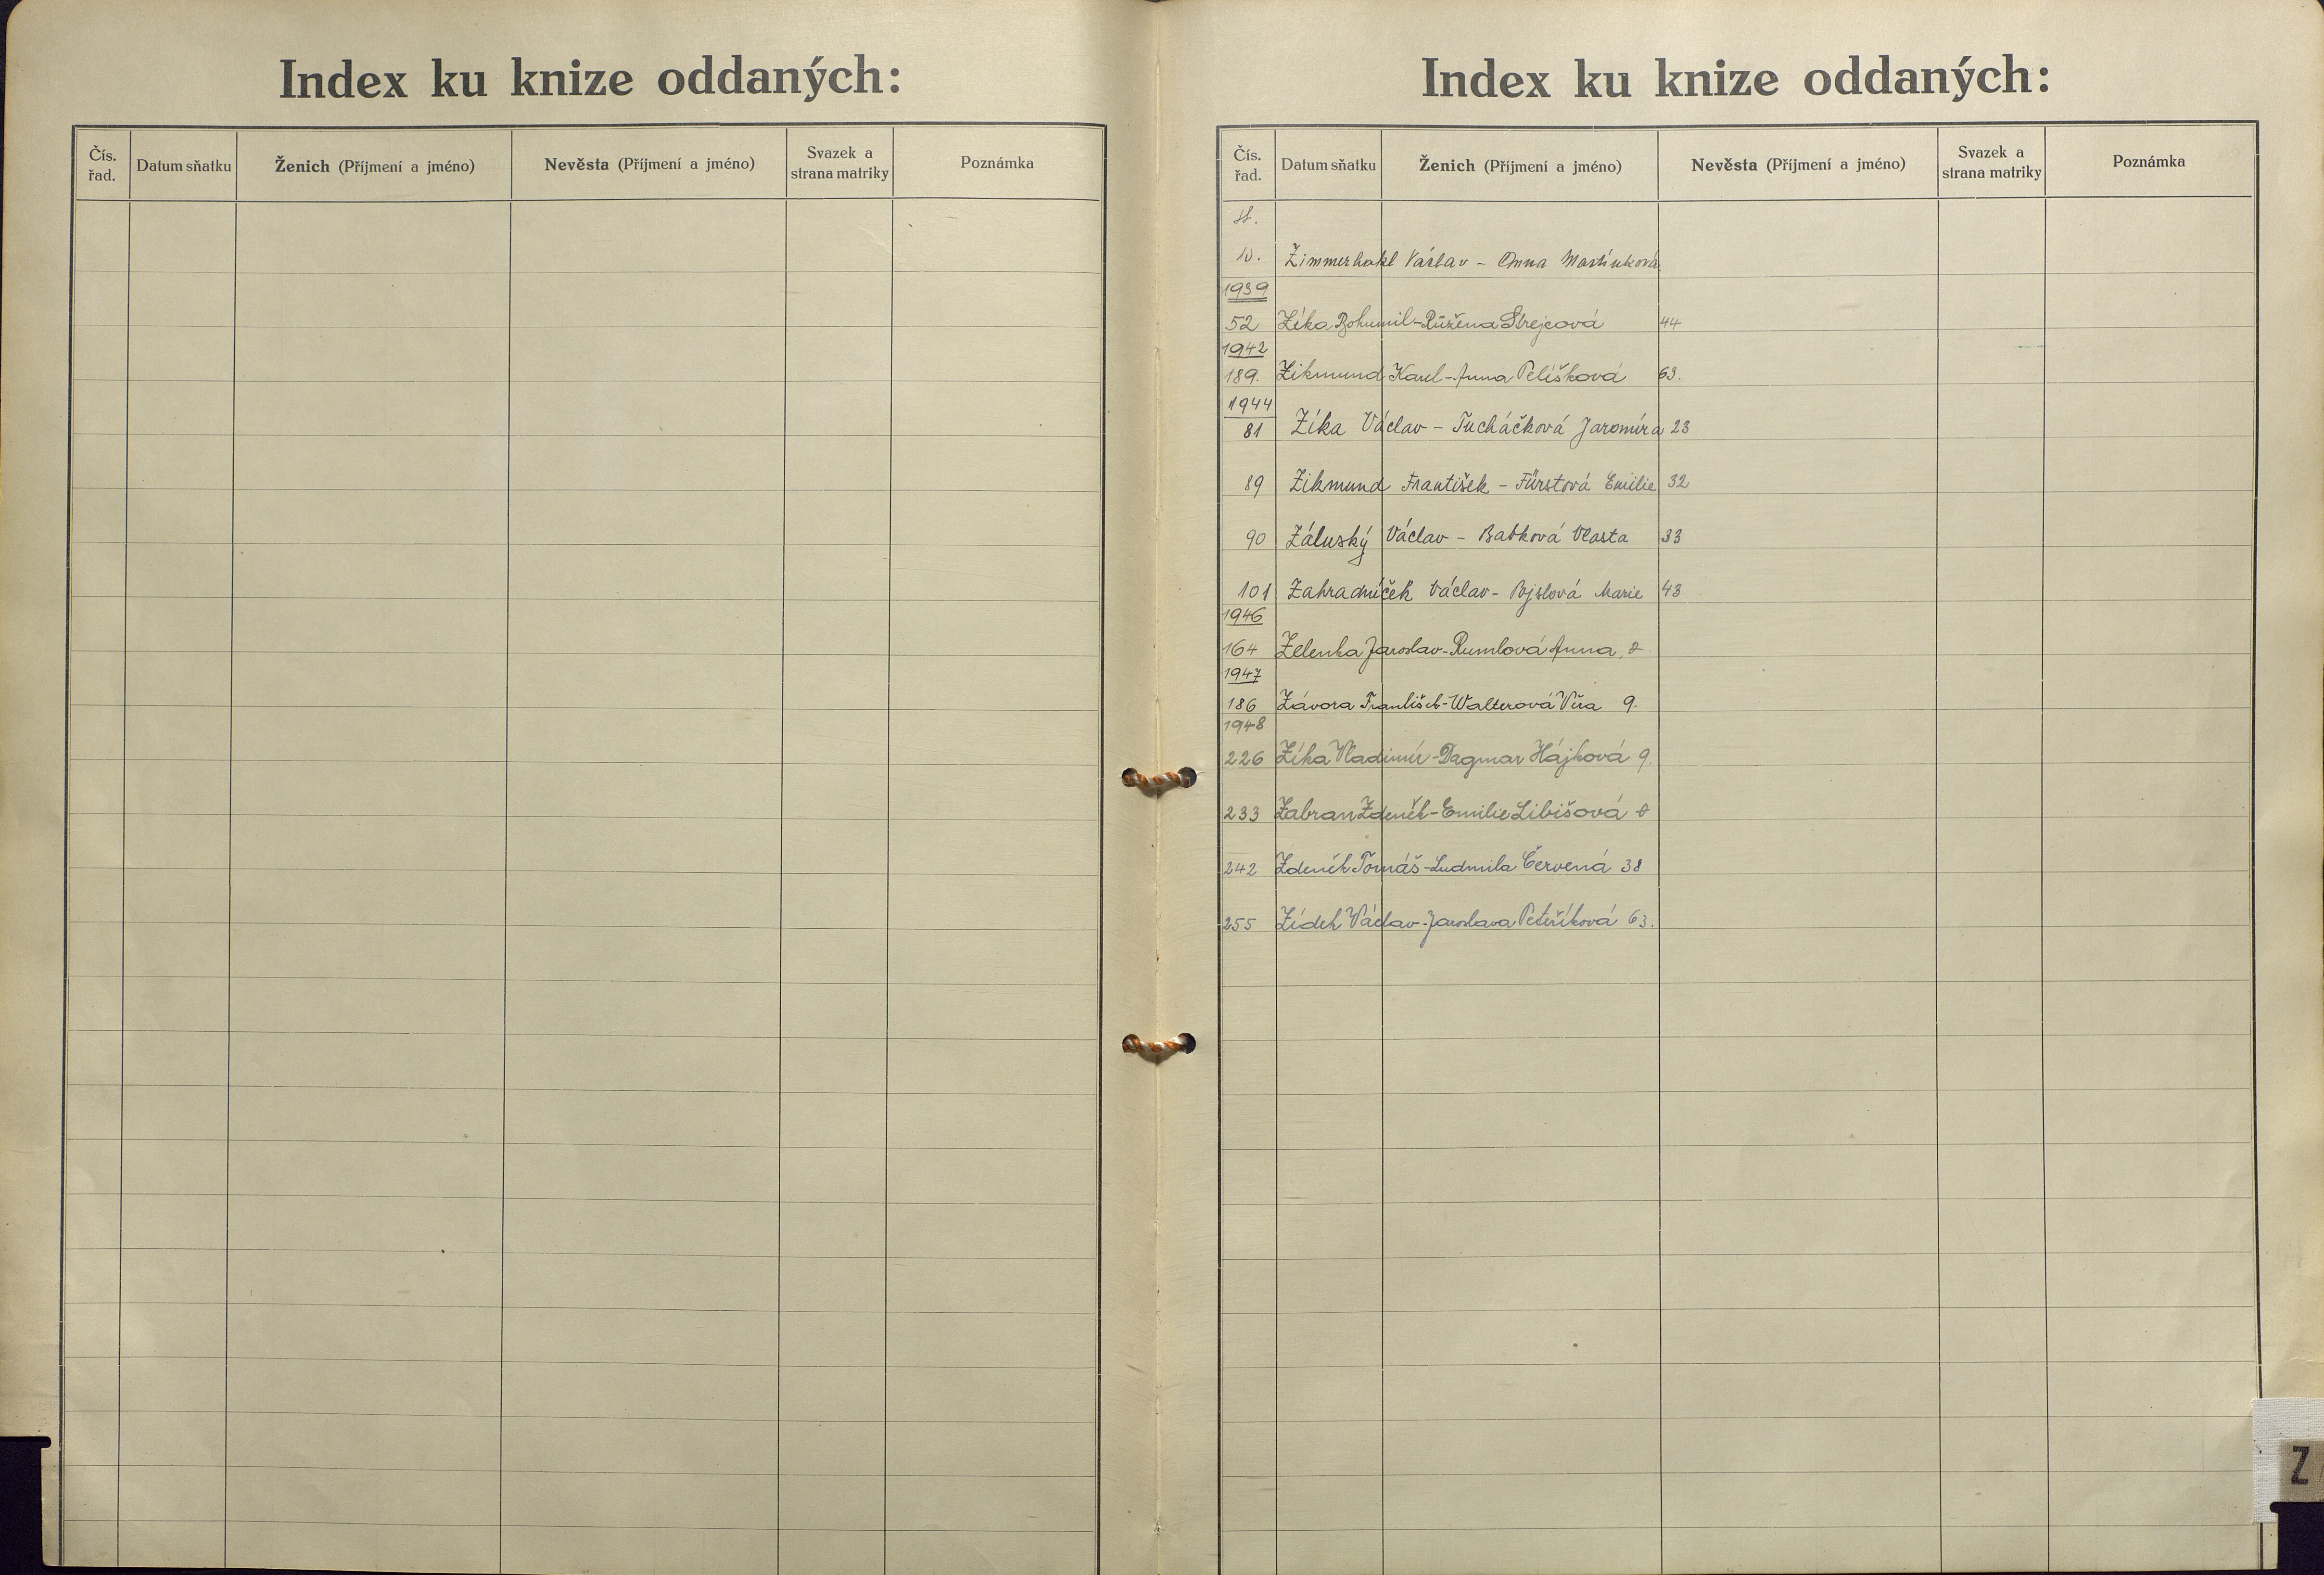 Index ku knize oddaných:
Čís. řad. Datum sňatku Ženich (Příjmení a jméno) Nevěsta (Příjmení a jméno) Svazek a strana matriky Poznámka
Index ku knize oddaných:
Čís. řad. Datum sňatku Ženich (Příjmení a jméno) Nevěsta (Příjmení a jméno) Svazek a strana matriky Poznámka
10. Zimmerhakl Václav - Anna Martinková
1939
52 Zíka Bohumil - Růžena Strejcová 44
1942
189. Zikmund Karel - Anna Pelíšková 63.
1944
81 Zíka Václav - Tucháčková Jaromíra 23
89 Zikmund František - Fürstová Emilie 32
90 Záluský Václav - Babková Vlasta 33
101 Zahradníček Václav - Marie 43
1946
164 Zelenka Jaroslav - Rumlová Anna
1947
186 Závora František - Walterová Věra 9.
1948
226 Zíka Vladimír - Dagmar Hájková 9.
233 Zabran Zdeněk - Emilie Libišová
242 Zdeněk Tomáš - Ludmila Červená 38
255 Zídek Václav - Jaroslava Peteříková 63.
Z